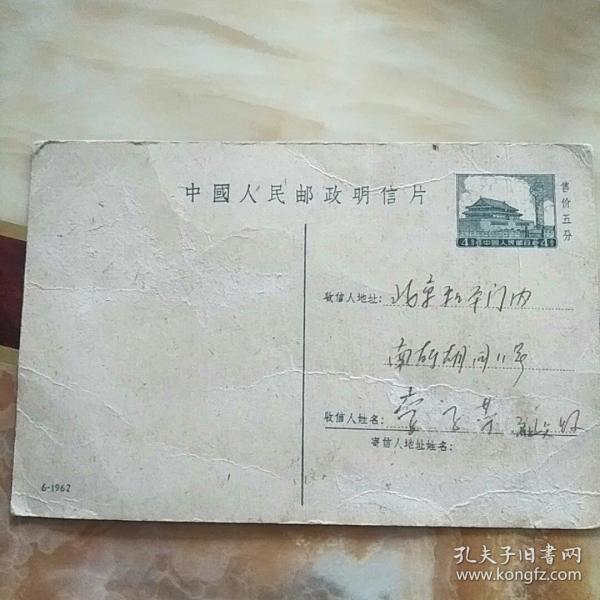 中國人民邮政明信片
售价五分
4分 中國人民邮政 4分
收信人地址：北京和平门内
南 胡同11号
收信人姓名：李
寄信人地址姓名：
6-1962
孔夫子旧书网
www.kongfz.com